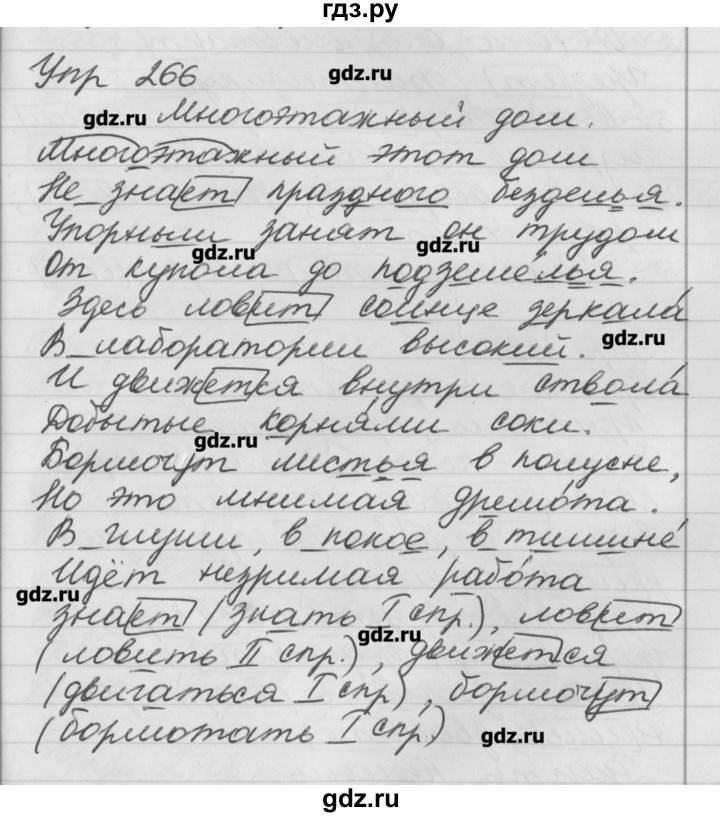 гдз.ру
Упр 266
gdz.ru
gdz.ru
Многоэтажный дом.
Многоэтажный этот дом
Не знает праздного безделья.
Упорным занят он трудом
gdz.ru
gdz.ru
От купола до подземелья.
Здесь ловит солнце зеркала́
gdz.ru
В лаборатории высокий.
И движется внутри ствола́
Добытые корня́ми соки.
gdz.ru
Бормочут листья в полусне,
Но это мнимая дремо́та.
В глуши, в покое, в тишине́
Идёт незримая рабо́та
gdz.ru
знает (знать I спр.), ловит
gdz.ru
(ловить II спр.), движется
(двигаться I спр), бормочут
(бормотать I спр)
gdz.ru
gdz.ru